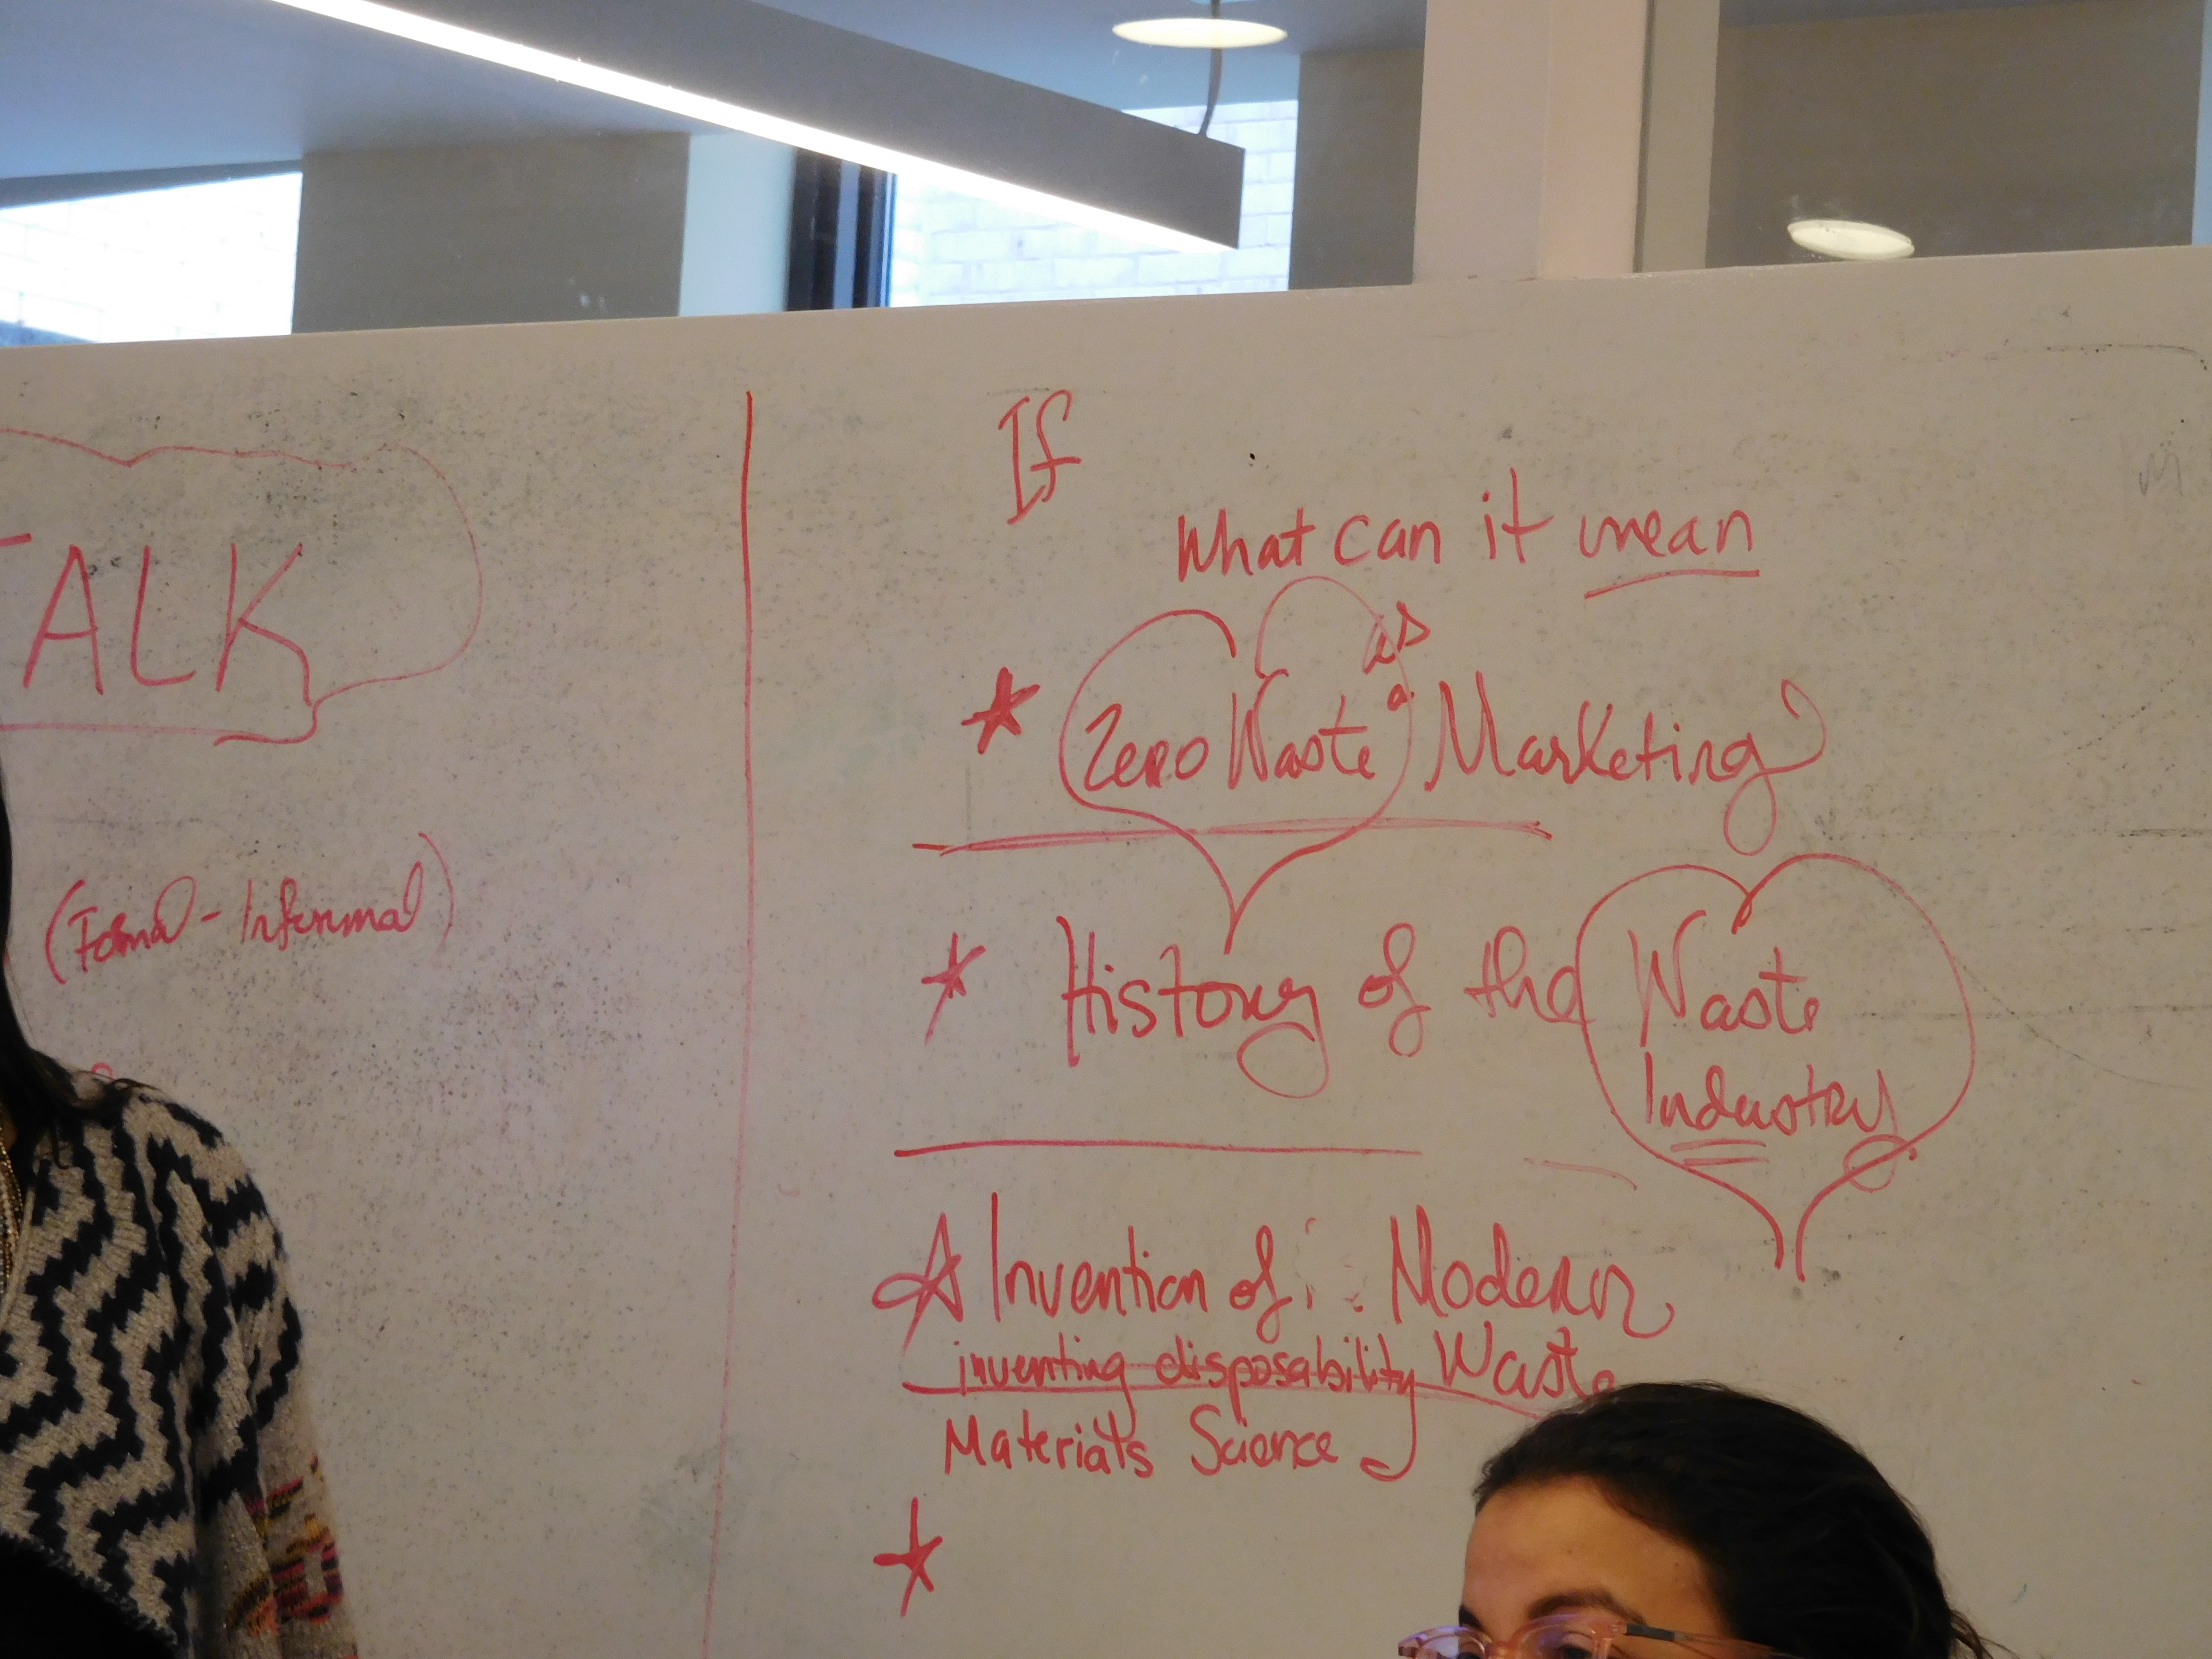 TALK
(Formal - Informal)
If
What can it mean
as
* Zero Waste a Marketing
* History of the Waste
Industry
* Invention of : Modern
inventing disposability Waste
Materials Science
*